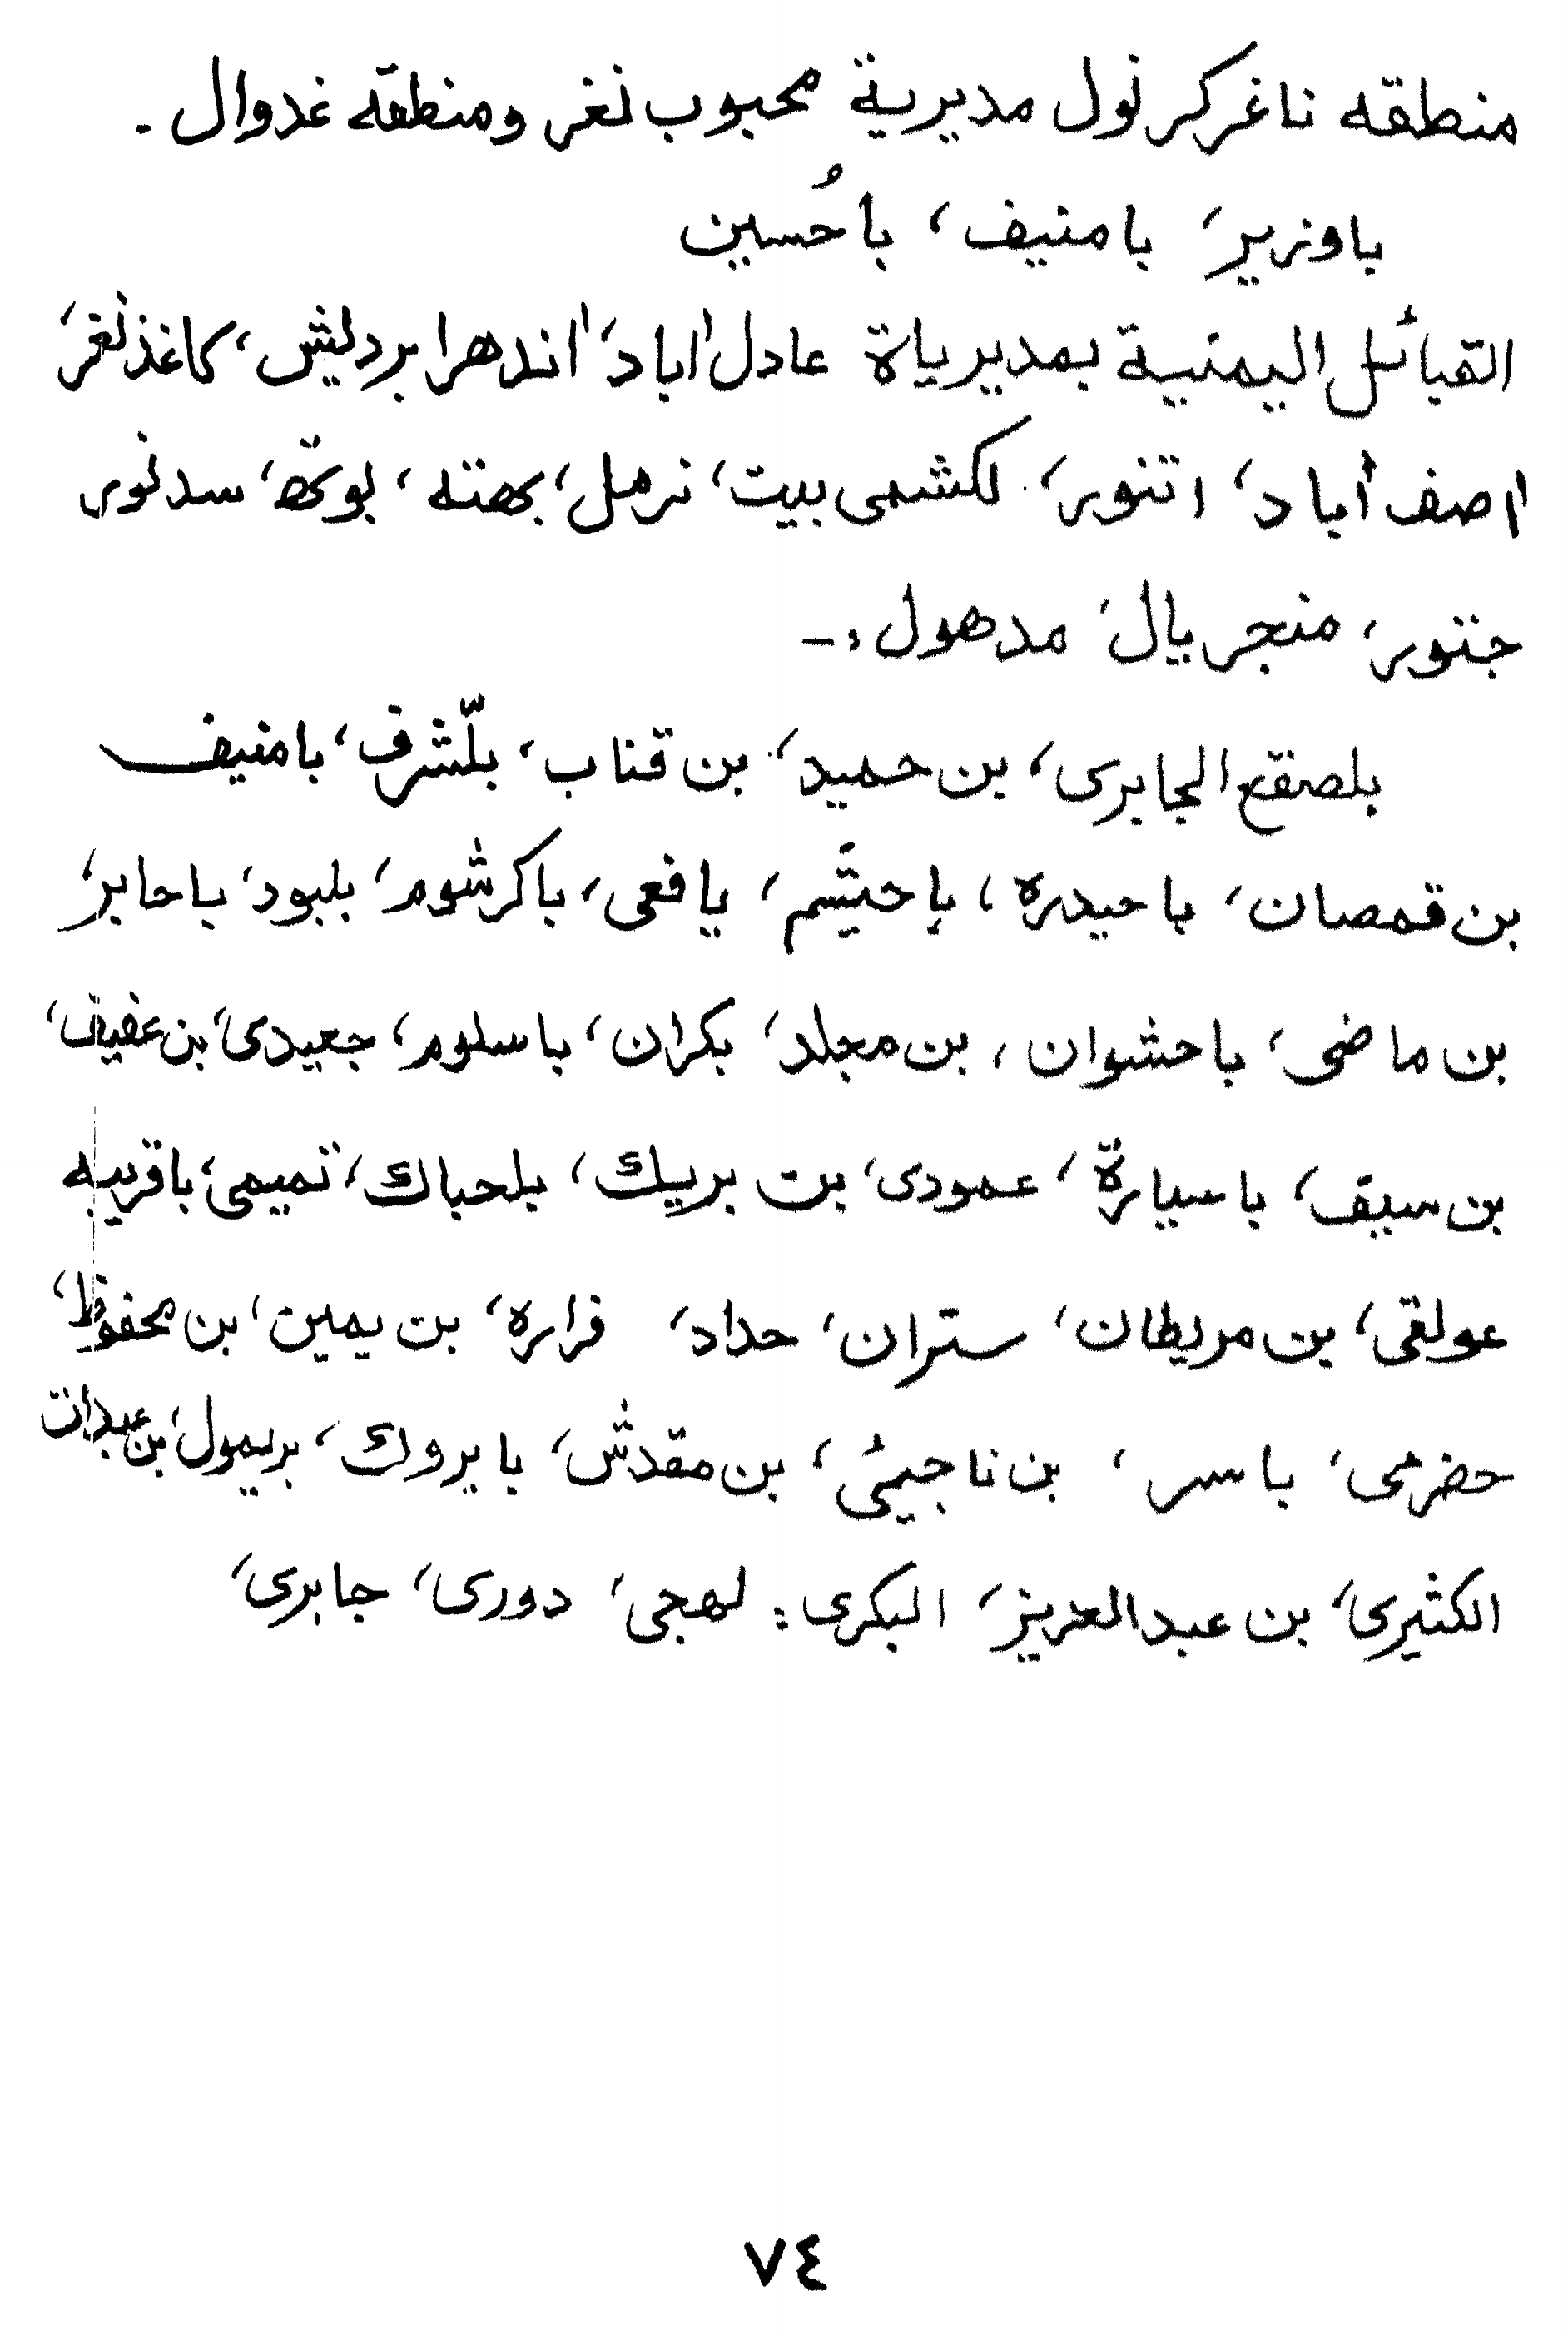 منطقه ناغر كرنول مديرية محبوب نغر ومنطقه غدوال .
باوزير، بامنيف، باحُسين
القبائل اليمنية بمديرياة عادل اباد، اندهرا برديش، كاغذ نغر،
اصف أباد، اتنور، لكشمى بيت، نرمل، بهتنه، بوتھ، سدنور
جنتور، منجريال، مدهول :ـ
بلصقع الجابرى، بن حميد، بن قناب، بلّشرف، بامنيف
بن قمصان، باحيدره، باحيشم، يافعى، باكرشوم، بلبود، باجابر،
بن ماضى، باحشوان، بن مجلد، بكران، باسلوم، جعيدى، بن عفيف،
بن سيف، باسيارة، عمودى، بن بريك، بلحباك، تميمى، باقريبه
عولقى، بن مريطان، ستران، حداد، فراره، بن يمين، بن محفوظ،
حضرمى، باسر، بن ناجيئ، بن مقدش، بايروك، بريمول، بن عبدات
الكثيرى، بن عبدالعزيز، البكرى: لهجى، دورى، جابرى،
٧٤